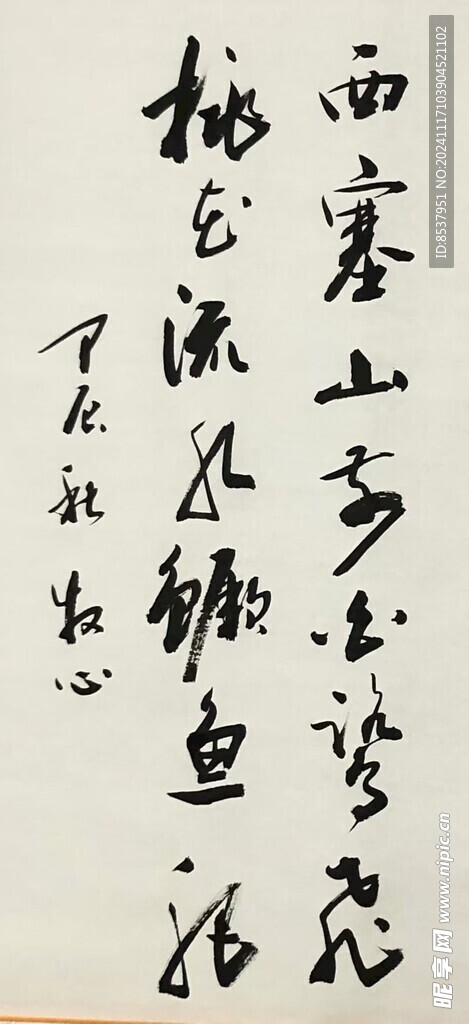 西塞山前白鹭飞
桃花流水鳜鱼肥
甲辰秋 牧心
ID:8537951 NO:20241117103904521102
昵享网 www.nipic.cn